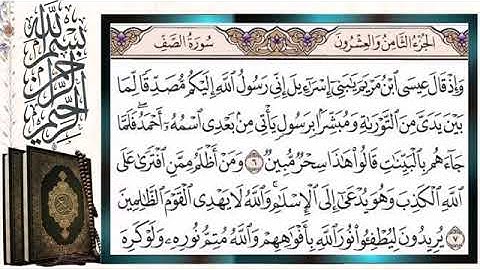 بسم الله الرحمن الرحيم
سُورَةُ الصَّفِّ
الجُزْءُ الثَّامِنُ وَالْعِشْرُونَ
وَإِذْ قَالَ عِيسَى ٱبْنُ مَرْيَمَ يَٰبَنِىٓ إِسْرَٰٓءِيلَ إِنِّى رَسُولُ ٱللَّهِ إِلَيْكُم مُّصَدِّقًا لِّمَا
بَيْنَ يَدَىَّ مِنَ ٱلتَّوْرَىٰةِ وَمُبَشِّرًۢا بِرَسُولٍ يَأْتِى مِنۢ بَعْدِى ٱسْمُهُۥٓ أَحْمَدُ ۖ فَلَمَّا
جَآءَهُم بِٱلْبَيِّنَٰتِ قَالُوا۟ هَٰذَا سِحْرٌ مُّبِينٌ ٦ وَمَنْ أَظْلَمُ مِمَّنِ ٱفْتَرَىٰ عَلَى
ٱللَّهِ ٱلْكَذِبَ وَهُوَ يُدْعَىٰٓ إِلَى ٱلْإِسْلَٰمِ ۚ وَٱللَّهُ لَا يَهْدِى ٱلْقَوْمَ ٱلظَّٰلِمِينَ
٧ يُرِيدُونَ لِيُطْفِـُٔوا۟ نُورَ ٱللَّهِ بِأَفْوَٰهِهِمْ وَٱللَّهُ مُتِمُّ نُورِهِۦ وَلَوْ كَرِهَ